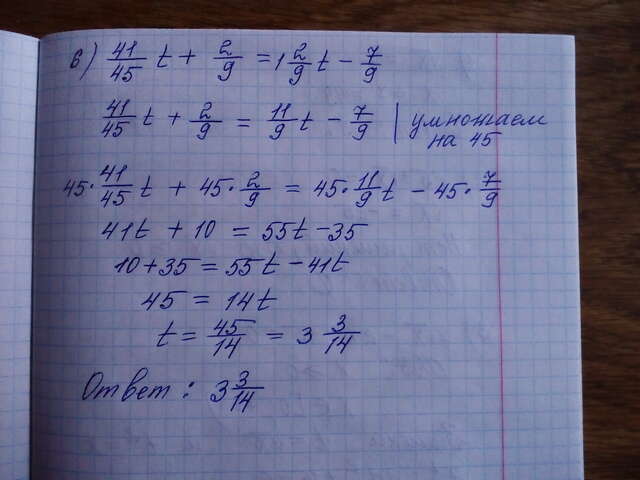 в) 41/45 t + 2/9 = 1 2/9 t - 7/9
41/45 t + 2/9 = 11/9 t - 7/9 | умножаем на 45
45·41/45 t + 45·2/9 = 45·11/9 t - 45·7/9
41t + 10 = 55t - 35
10 + 35 = 55t - 41t
45 = 14t
t = 45/14 = 3 3/14
Ответ: 3 3/14